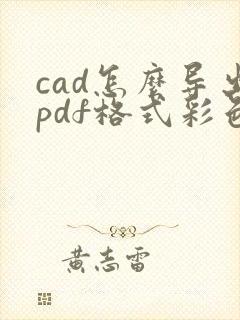 cad怎麽导出
pdf格式彩色
黄志雷